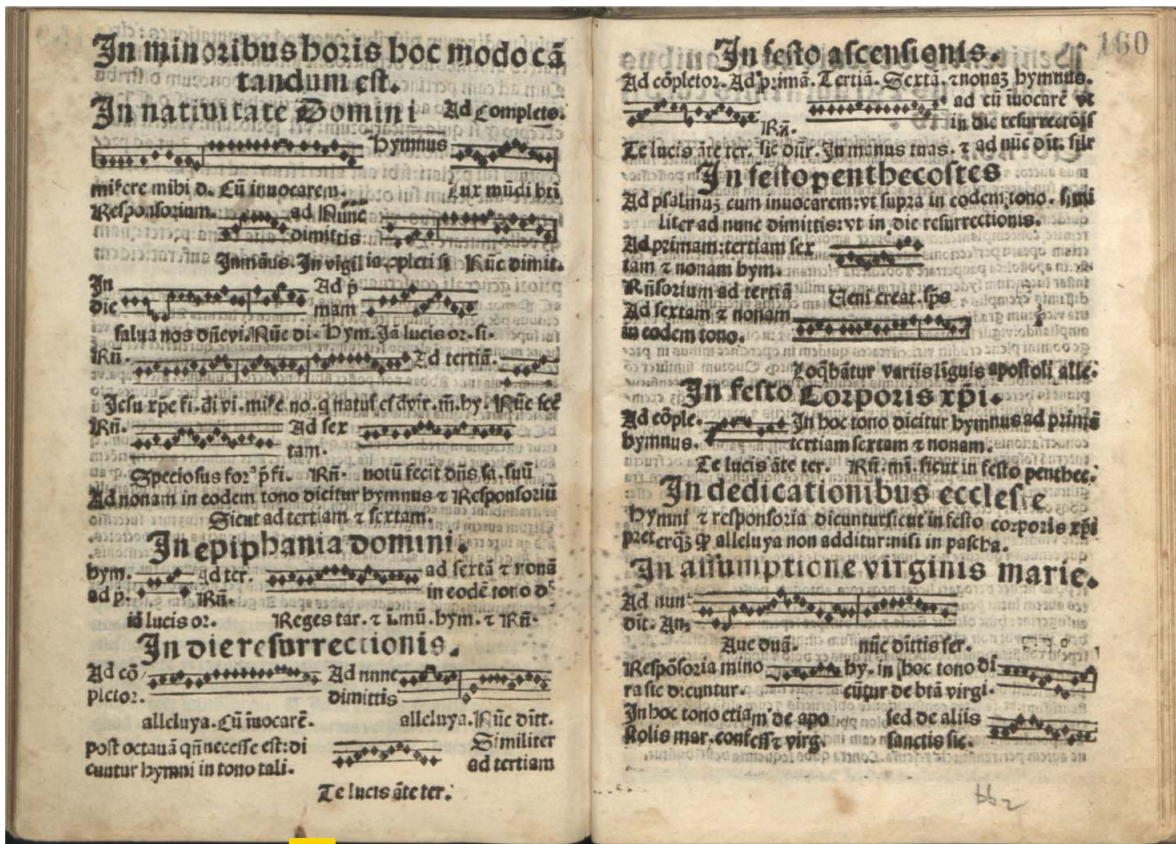 In minoribus horis hoc modo cā
tandum est.
In nativitate Domini Ad completo.
hymnus
miſere mihi d. Cū invocarem. Lux mūdi bti
Responsorium. ad Nūnc
dimittis
In manus. In vigilia ꝯpleti ſi Nūc dimit.
In Ad p̄
die mam
salua nos dn̄e vi. Nūc di. Hym. Jā lucis or. si.
Rn̄. Ad tertiā.
Jesu xp̄e fi. di vi. miſe. no. q natus es d vir. m̄. hy. Nūc sce
Rn̄. Ad sex
tam.
Speciosus for p̄ fi. Rn̄. notū fecit dn̄s sa. suū
Ad nonam in eodem tono dicitur hymnus ⁊ Responsoriū
Sicut ad tertiam ⁊ sextam.
In epiphania domini.
hym. Ad ter. ad sextā ⁊ nonā
ad p̄. Rn̄. in eodē tono
id lucis or. Reges tar. ⁊ i. mū. hym. ⁊ Rn̄.
In die resurrectionis.
Ad cō Ad nunc
pletor. dimittis
alleluya. Cū īuocarē. alleluya. Nūc dītt.
post octauā qn̄ necesse est: di Similiter
cuntur hymni in tono tali. ad tertiam
Te lucis āte ter.
160
In festo ascensionis.
Ad cōpletor. Ad primā. Tertiā. Sextā. ⁊ nonaꝫ hymnus.
ad cū īuocarē vt
Rn̄. in die resurrectōis
Te lucis āte ter. sic dūr. In manus tuas. ⁊ ad nūc dīt. silr
In festo penthecostes
Ad psalmuꝫ cum inuocarem: vt supra in eodem tono. simi
liter ad nunc dimittis: vt in die resurrectionis.
Ad primam: tertiam sex
tam ⁊ nonam hym.
Rn̄sorium ad tertiā Ueni creat. sp̄s
Ad sextam ⁊ nonam
in eodem tono.
Loqbātur variis līguis apostoli alle.
In festo Corporis xp̄i.
Ad cōple. In hoc tono dicitur hymnus ad primā
hymnus. tertiam sextam ⁊ nonam.
Te lucis āte ter. Rn̄. mī. sicut in festo penthec.
In dedicationibus ecclesie
Hymni ⁊ responsoria dicuntur sicut in festo corporis xp̄i
preterqꝫ ꝙ alleluya non additur: nisi in pascha.
In assumptione virginis marie.
Ad nun
dit. An.
Aue dnā. nūc dīttis ser.
Respōsoria mino hy. in hoc tono di
ra sic dicuntur. cūtur de btā virgi.
In hoc tono etiam de apo sed de aliis
stolis mar. confess ⁊ virg. sanctis sic.
bb 2